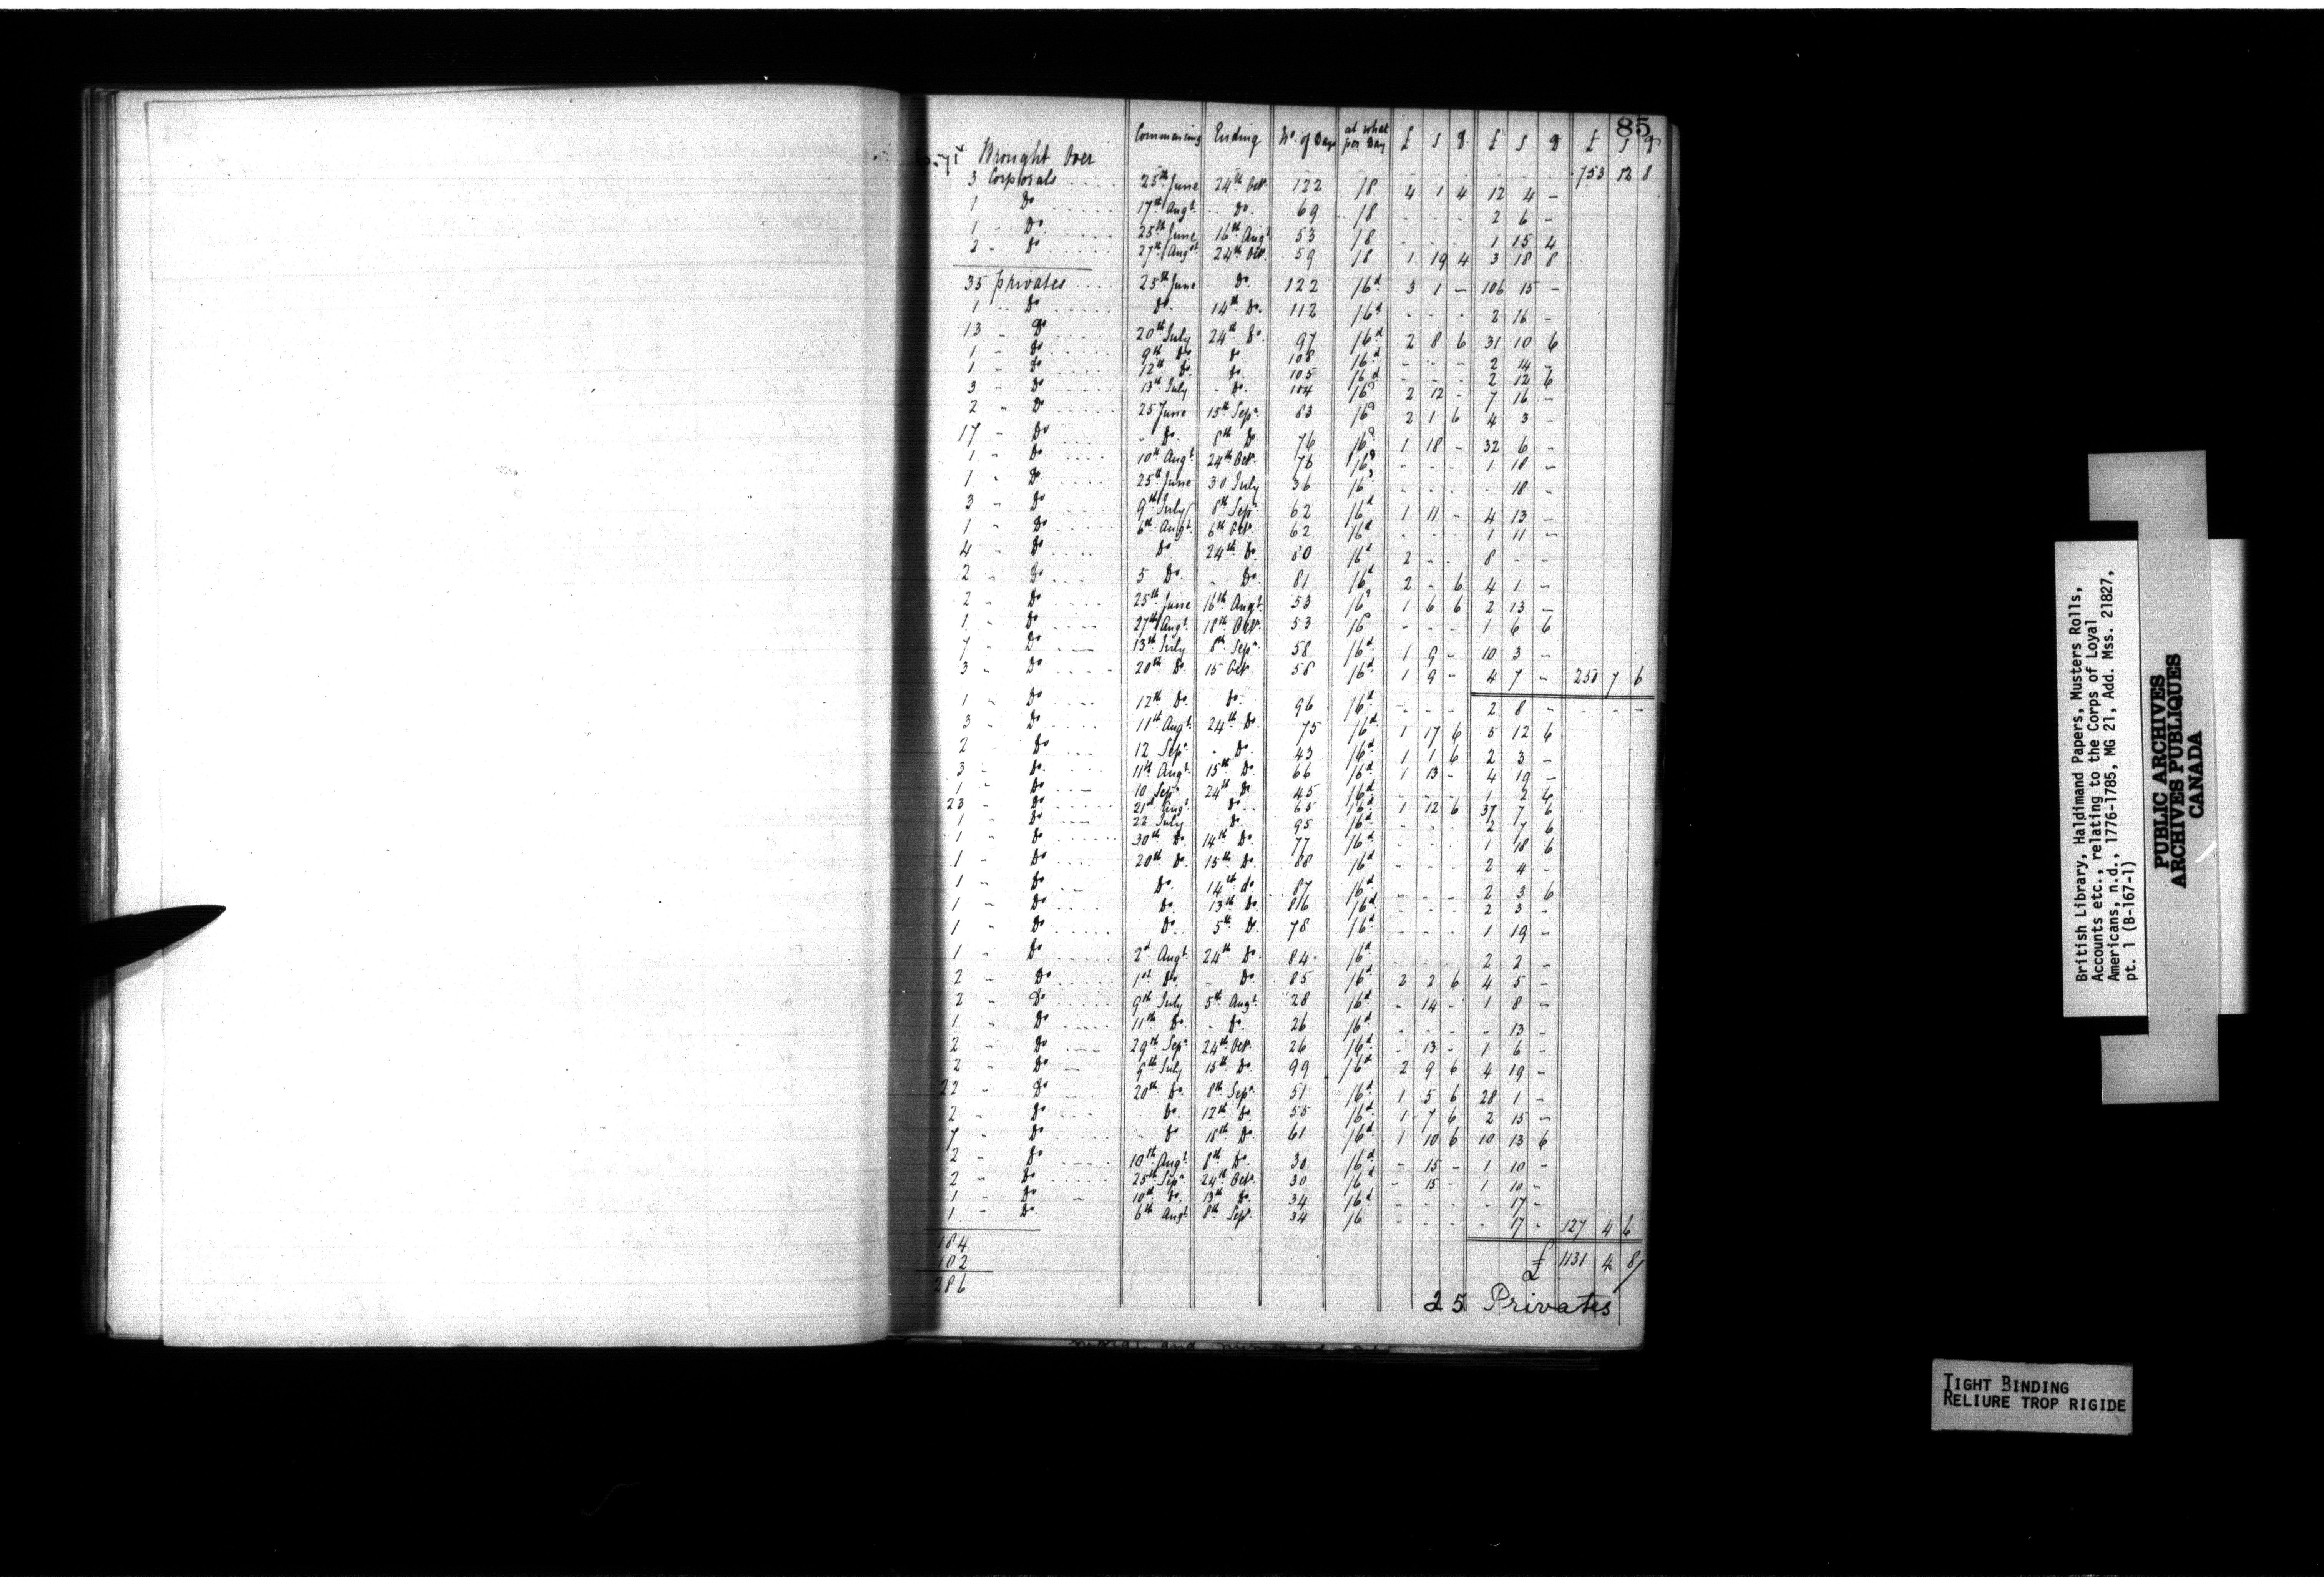 85
Commencing Ending No. of Days at what per Day £ s d £ s d £ s d
Brought Over - - - - - - 753 12 8
3 Corporals .... 25th June 24th Octr. 122 18 4 1 4 12 4 -
1 Do ..... 17th Augt. .. Do. 69 18 - - - 2 6 -
1 - Do. ..... 25th June 16th Augt. 53 18 - - - 1 15 4
2 - Do ..... 27th Augst. 24th Octr. 59 18 1 19 4 3 18 8
35 privates .... 25th June - Do. 122 16d 3 1 - 106 15 -
1 - Do ..... Do. 14th Do. 112 16d - - - 2 16 -
13 - Do ..... 20th July 24th Do. 97 16d 2 8 6 31 10 6
1 - Do ..... 9th Do Do. 108 16d - - - 2 14 -
1 - Do ..... 12th Do. Do. 105 16d - - - 2 12 6
3 - Do ..... 13th July - Do. 104 16d 2 12 - 7 16 -
2 - Do ..... 25 June 15th Sepr. 83 16d 2 1 6 4 3 -
17 - Do .... - Do. 8th Do. 76 16d 1 18 - 32 6 -
1 - Do .... 10th Augt. 24th Octr. 76 16d - - - 1 18 -
1 - Do ..... 25th June 30 July 36 16d - - - 18 -
3 - Do .... 9th July 8th Sepr. 62 16d 1 11 - 4 13 -
1 - Do .... 6th Augt. 6th Octr. 62 16d - - - 1 11 -
4 - Do .... Do 24th Do. 80 16d 2 - - 8 - -
2 - Do .... 5 Do. - Do. 81 16d 2 - 6 4 1 -
2 - Do .... 25th June 16th Augt. 53 16d 1 6 6 2 13 -
1 - Do .... 27th Augt. 18th Octr. 53 16d - - - 1 6 6
7 - Do .... 13th July 8th Sepr. 58 16d 1 9 - 10 3 -
3 - Do .... 20th Do. 15 Octr. 58 16d 1 9 - 4 7 - 250 7 6
1 - Do .... 12th Do. Do. 96 16d - - - 2 8 - - - -
3 - Do .... 11th Augt. 24th Do. 75 16d 1 17 6 5 12 6
2 - Do .... 12 Sepr. - Do. 43 16d 1 1 6 2 3 -
3 - Do. .... 11th Augt. 15th Do. 66 16d 1 13 - 4 19 -
1 - Do .... 10 Sepr. 24th Do 45 16d - - - 1 2 6
23 - Do ..... 21st Augt. Do .. 65 16d 1 12 6 37 7 6
1 - Do .... 22 July Do. 95 16d - - - 2 7 6
1 - Do ..... 30th Do. 14th Do. 77 16d - - - 1 18 6
1 - Do .... 20th Do. 15th Do. 88 16d - - - 2 4 -
1 - Do .. Do. 14th do. 87 16d - - - 2 3 6
1 - Do .... Do. 13th Do. 86 16d - - - 2 3 -
1 - Do ..... Do.. 5th Do. 78 16d - - - 1 19 -
1 - Do ..... 2d Augt. 24th Do. 84 16d - - - 2 2 -
2 - Do ..... 1st Do. - Do. 85 16d 2 2 6 4 5 -
2 - Do ..... 9th July 5th Augt. 28 16d - 14 - 1 8 -
1 - Do .... 11th Do. - Do. 26 16d - - - - 13 -
2 - Do .... 29th Sepr. 24th Octr. 26 16d - 13 - 1 6 -
2 - Do - 9th July 15th Do. 99 16d 2 9 6 4 19 -
22 - Do .... 20th Do. 8th Sepr. 51 16d 1 5 6 28 1 -
2 - Do ... - Do. 12th Do. 55 16d 1 7 6 2 15 -
7 - Do ..... - Do 18th Do. 61 16d 1 10 6 10 13 6
2 - Do .... 10th Augt. 8th Do. 30 16d - 15 - 1 10 -
2 - Do ..... 25th Sepr. 24th Octr. 30 16d - 15 - 1 10 -
1 - Do - 10th Do. 13th Do. 34 16d - - - - 17 -
1 - Do. 6th Augt. 8th Sepr. 34 16 - - - - 17 - 127 4 6
184
102 £ 1131 4 8/
286
25 Privates
British Library, Haldimand Papers, Musters Rolls,
Accounts etc., relating to the Corps of Loyal
Americans, n.d., 1776-1785, MG 21, Add. Mss. 21827,
pt. 1 (B-167-1)
PUBLIC ARCHIVES
ARCHIVES PUBLIQUES
CANADA
TIGHT BINDING
RELIURE TROP RIGIDE